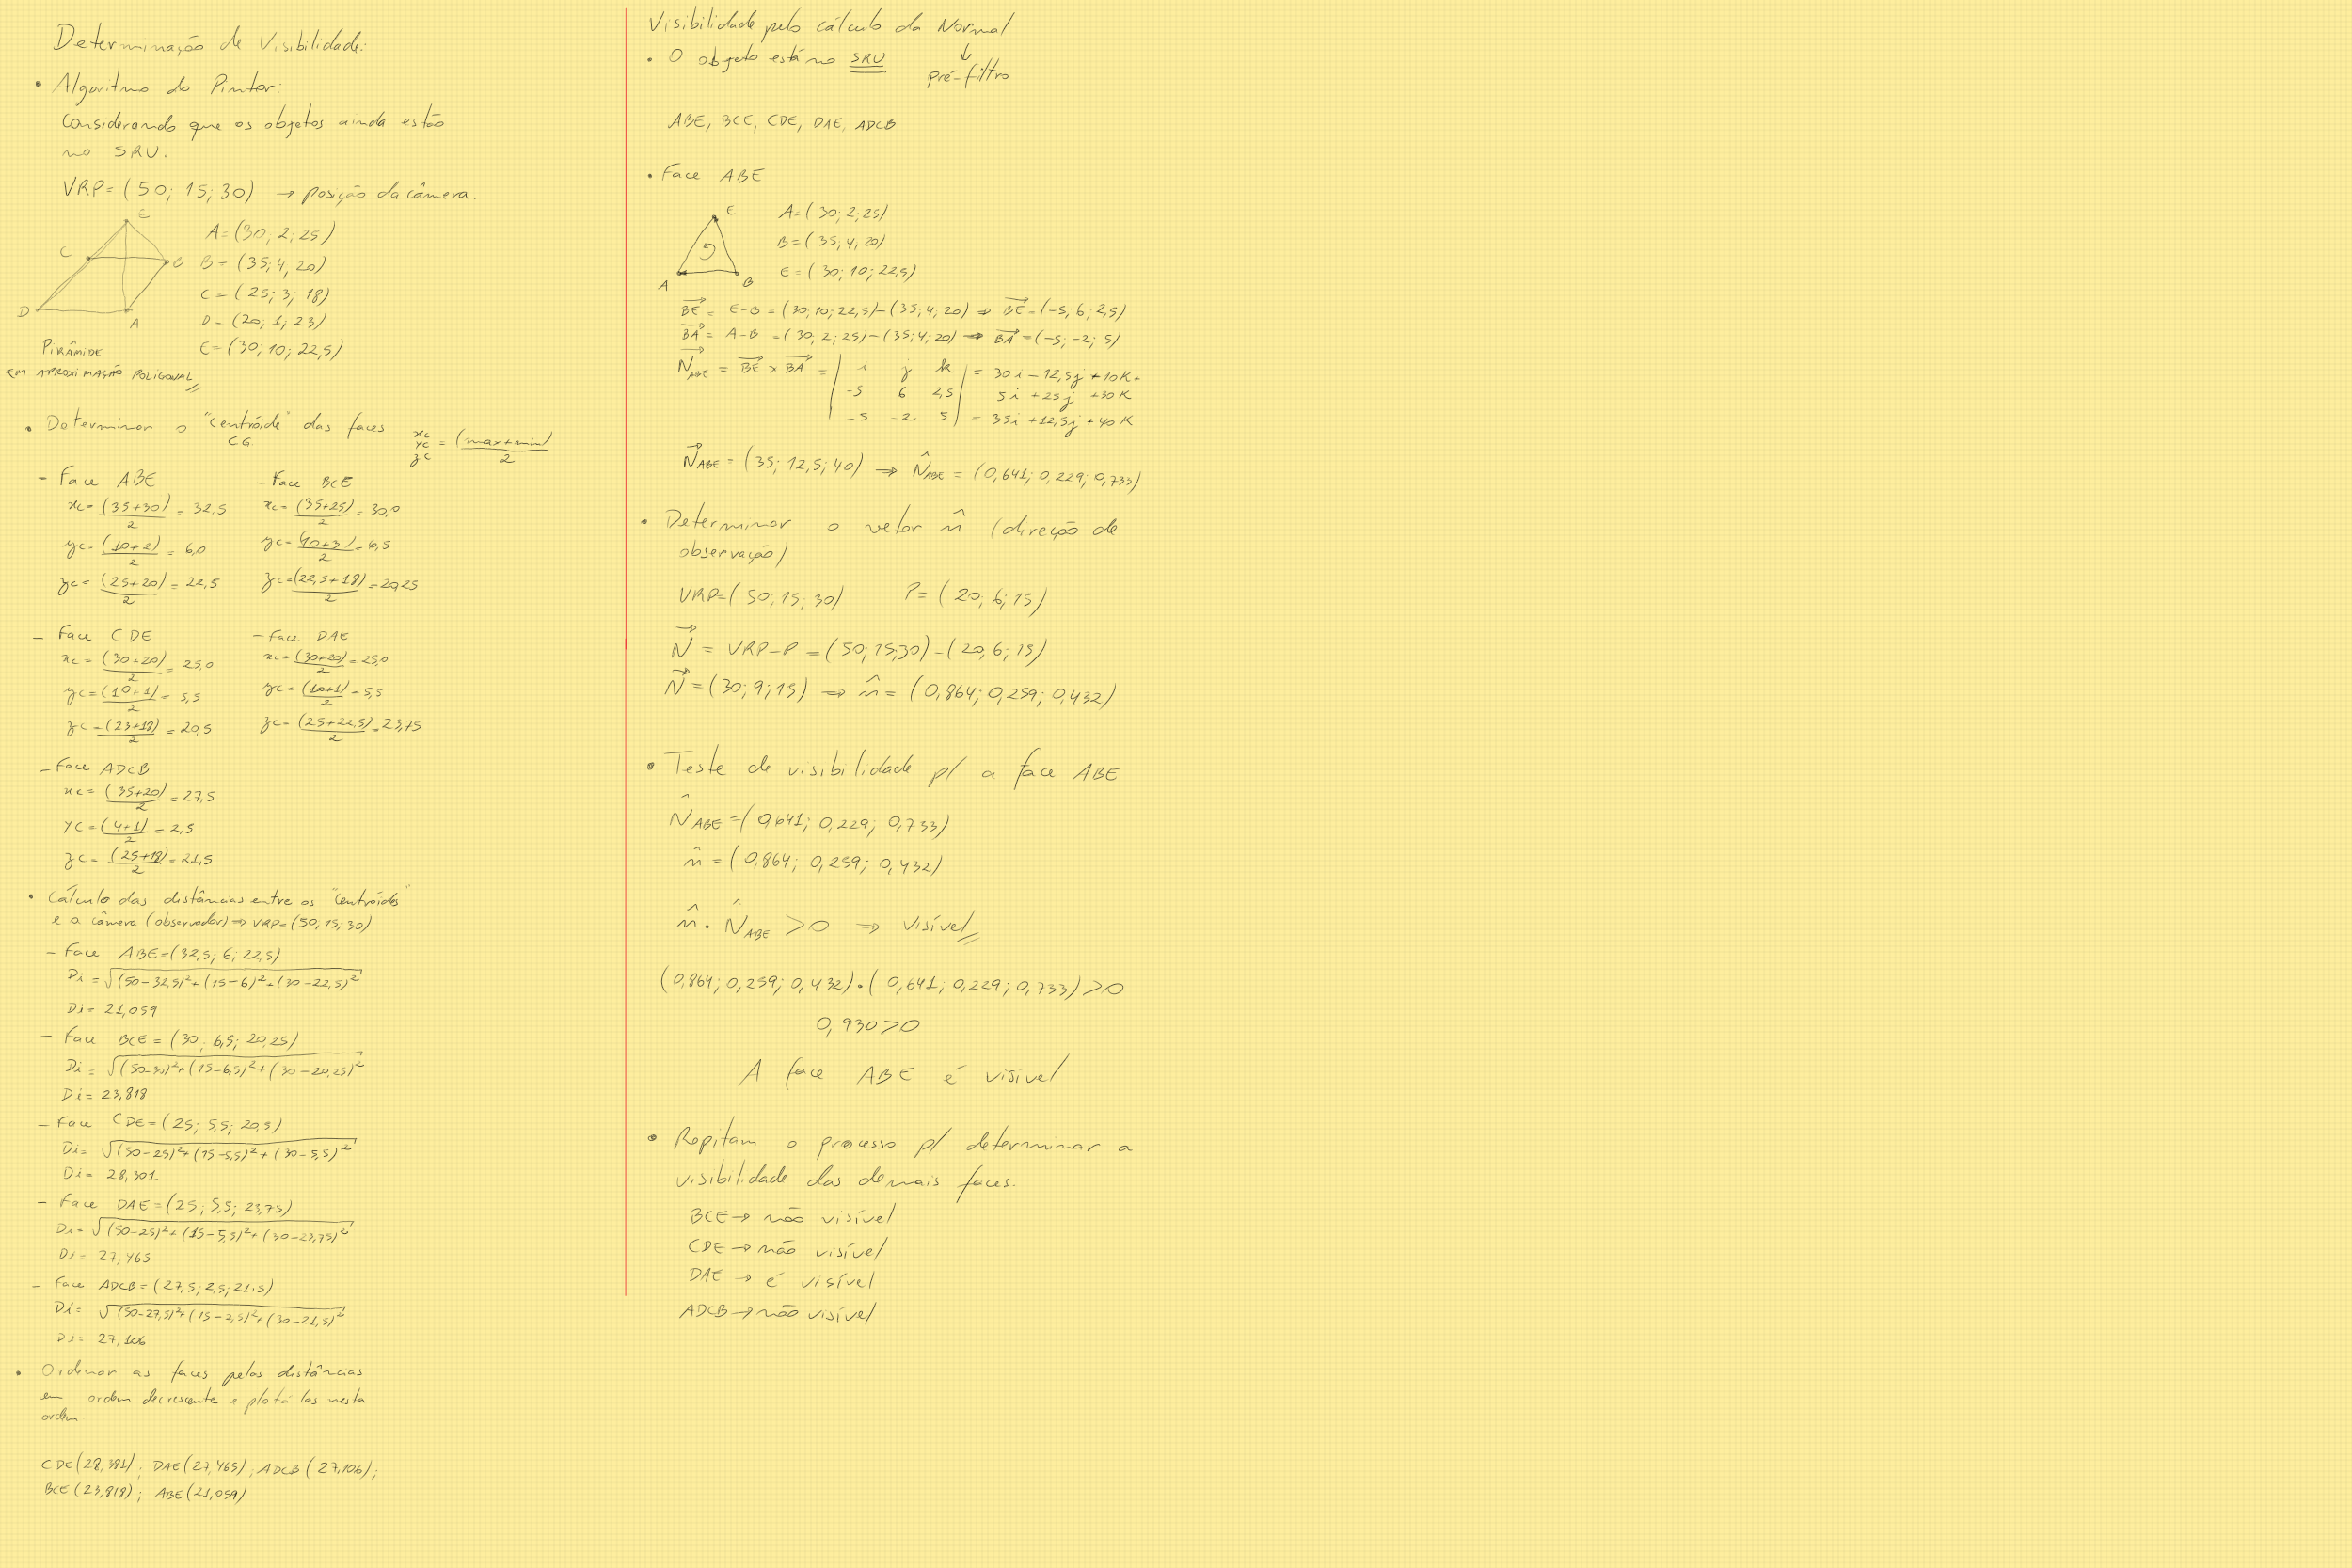 Determinação de Visibilidade:
• Algoritmo do Pintor:
Considerando que os objetos ainda estão
no SRU.
VRP=(50; 15; 30) → posição da câmera.
E
C
B
D
A
A=(30, 2; 25)
B=(35; 4, 20)
C=(25; 3; 18)
D=(20; 1; 23)
E=(30; 10; 22,5)
PIRÂMIDE
EM APROXIMAÇÃO POLIGONAL
• Determinar o "centróide" das faces
CG.
xc
yc = (max+min)
zc 2
- Face ABE
xc=(35+30)/2 = 32,5
yc=(10+2)/2 = 6,0
zc=(25+20)/2 = 22,5
- Face BCE
xc=(35+25)/2=30,0
yc=(10+3)/2=6,5
zc=(22,5+18)/2=20,25
- Face CDE
xc=(30+20)/2=25,0
yc=(10+1)/2=5,5
zc=(23+18)/2=20,5
- Face DAE
xc=(30+20)/2=25,0
yc=(10+1)/2=5,5
zc=(25+22,5)/2=23,75
- Face ADCB
xc=(35+20)/2=27,5
yc=(4+1)/2=2,5
zc=(25+18)/2=21,5
• Cálculo das distâncias entre os "centróides"
e a câmera (observador)⇒VRP=(50; 15; 30)
- Face ABE=(32,5; 6; 22,5)
Di=√(50-32,5)²+(15-6)²+(30-22,5)²
Di=21,059
- Face BCE=(30; 6,5; 20,25)
Di=√(50-30)²+(15-6,5)²+(30-20,25)²
Di=23,818
- Face CDE=(25; 5,5; 20,5)
Di=√(50-25)²+(15-5,5)²+(30-5,5)²
Di=28,301
- Face DAE=(25; 5,5; 23,75)
Di=√(50-25)²+(15-5,5)²+(30-23,75)²
Di=27,465
- Face ADCB=(27,5; 2,5; 21,5)
Di=√(50-27,5)²+(15-2,5)²+(30-21,5)²
Di=27,106
• Ordenar as faces pelas distâncias
em ordem decrescente e plotá-las nesta
ordem.
CDE(28,381); DAE(27,465); ADCB(27,106);
BCE(23,818); ABE(21,059)
Visibilidade pelo cálculo da Normal
↓
• O objeto está no SRU
pré-filtro
ABE, BCE, CDE, DAE, ADCB
• Face ABE
E
A
B
A=(30; 2; 25)
B=(35; 4, 20)
E=(30; 10; 22,5)
BE = E-B = (30; 10; 22,5)-(35; 4; 20) ⇒ BE=(-5; 6; 2,5)
BA = A-B = (30; 2; 25)-(35; 4; 20) ⇒ BA=(-5; -2; 5)
N ABE = BE × BA = | i j k | = 30i-12,5j+10K+
-5 6 2,5 5i+25j+30K
-5 -2 5 | = 35i+12,5j+40K
N ABE=(35; 12,5; 40) ⇒ N̂ ABE=(0,641; 0,229; 0,733)
• Determinar o vetor n̂ (direção de
observação)
VRP=(50; 15; 30) P=(20; 6; 15)
N = VRP-P = (50; 15; 30)-(20; 6; 15)
N=(30; 9; 15) ⇒ n̂=(0,864; 0,259; 0,432)
• Teste de visibilidade p/ a face ABE
N̂ ABE=(0,641; 0,229; 0,733)
n̂=(0,864; 0,259; 0,432)
n̂ . N̂ ABE > 0 ⇒ Visível
(0,864; 0,259; 0,432).(0,641; 0,229; 0,733)>0
0,930>0
A face ABE é visível
• Repitam o processo p/ determinar a
visibilidade das demais faces.
BCE→ não visível
CDE→ não visível
DAE→ é visível
ADCB→ não visível